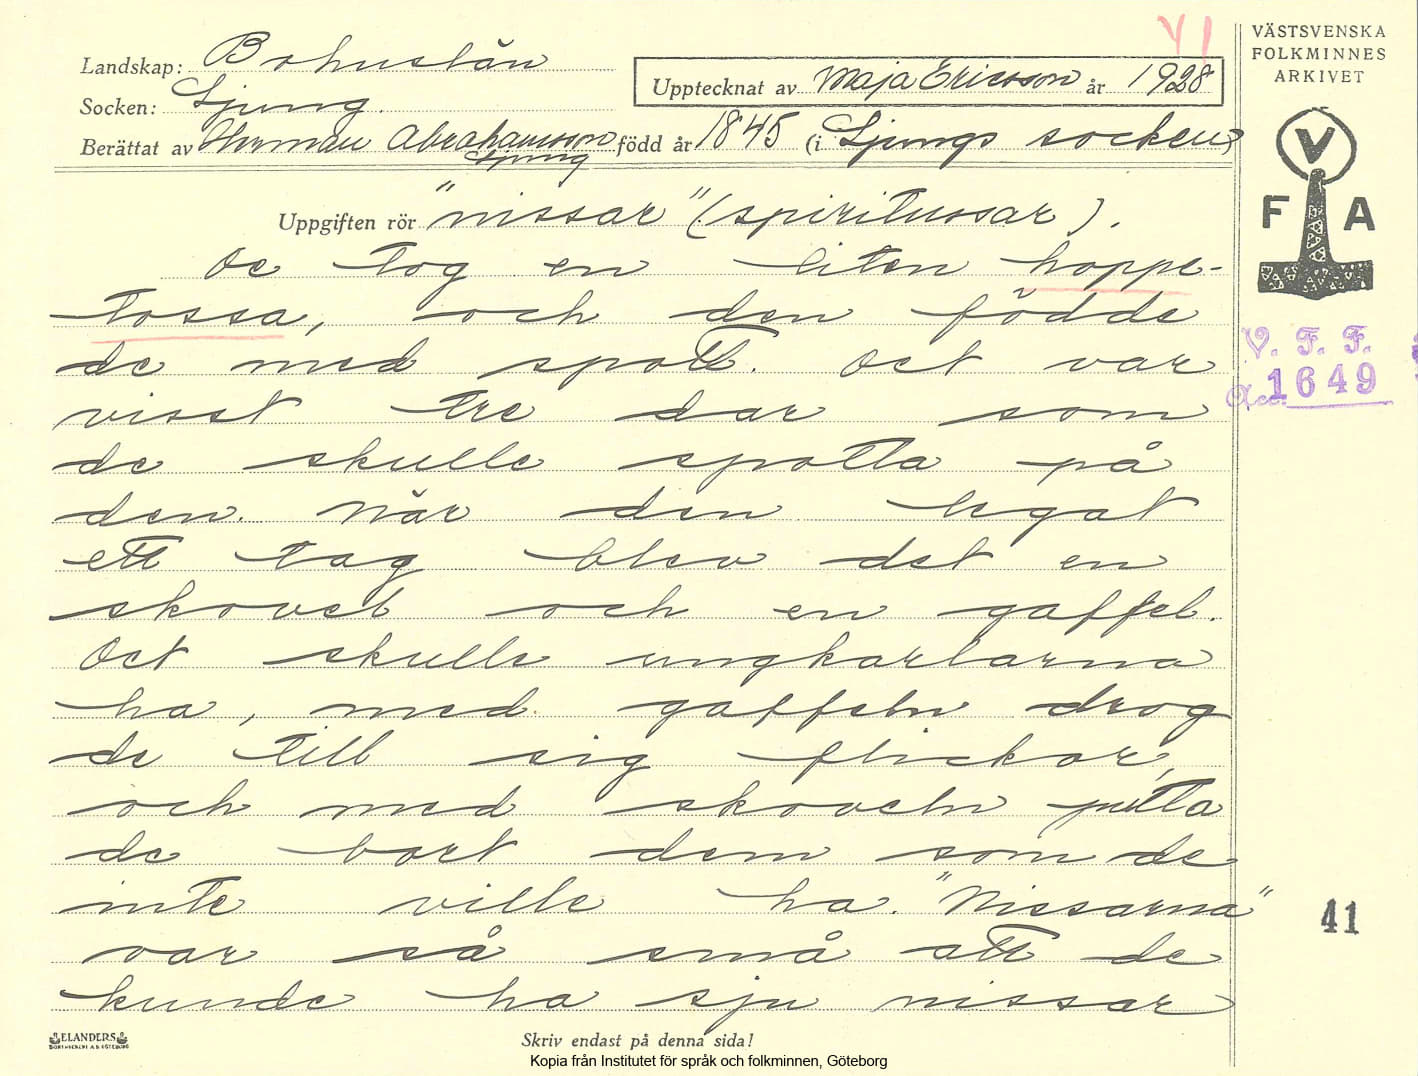 VI
VÄSTSVENSKA
FOLKMINNES
ARKIVET
Landskap: Bohuslän
Upptecknat av Maja Ericsson år 1928
Socken: Ljung.
Berättat av Herman Abrahamsson född år 1845 (i Ljungs socken)
Ljung
V
F A
Uppgiften rör "nissar" (spiritussar).
De tog en liten hoppe-
tossa, och den födde
de med spott. Det var
visst tre dar som
de skulle spotta på
den. När den legat
ett tag blev det en
skovel och en gaffel.
Det skulle ungkarlarna
ha, med gaffeln drog
de till sig flickor,
och med skoveln putta
de bort dem som de
inte ville ha. "Nissarna"
var så små att de
kunde ha sju nissar
V. F. F.
Acc. 1649
41
ELANDERS
BOKTRYCKERI A.B. GÖTEBORG
Skriv endast på denna sida!
Kopia från Institutet för språk och folkminnen, Göteborg